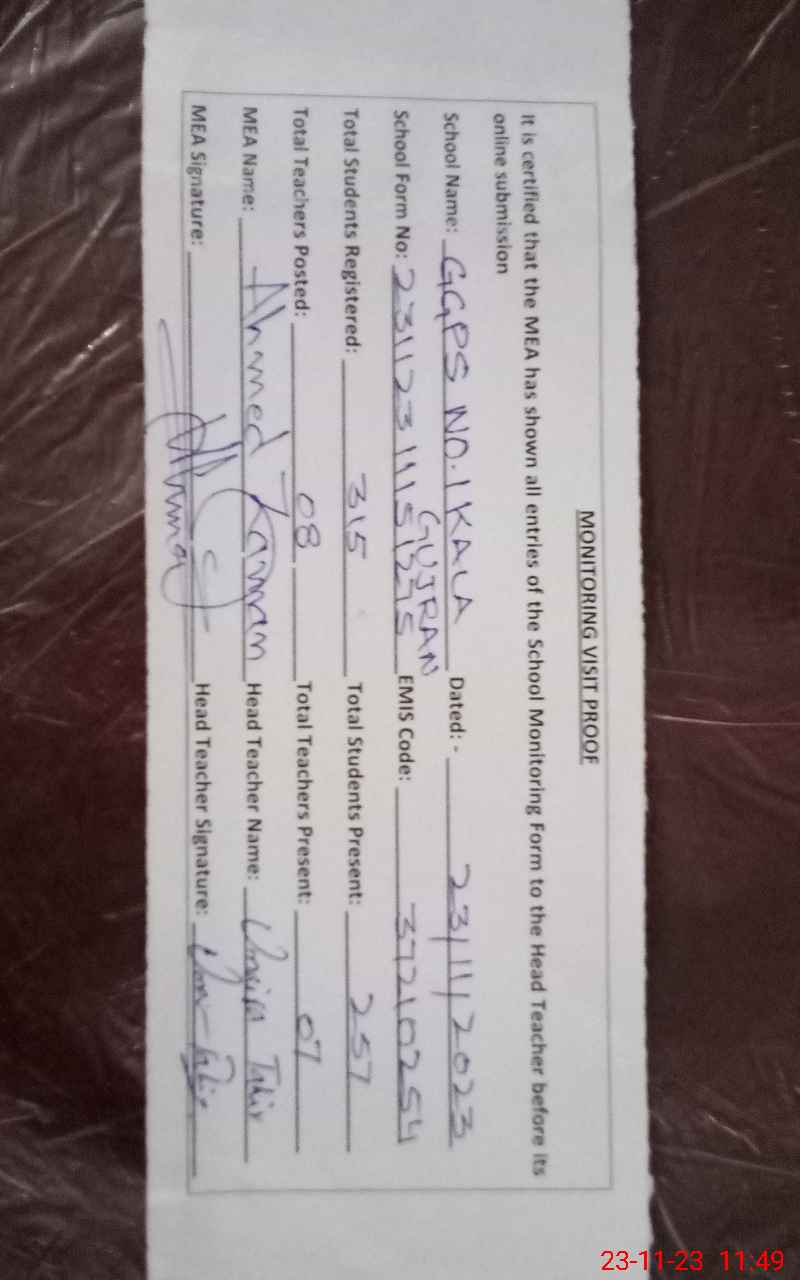 MONITORING VISIT PROOF
It is certified that the MEA has shown all entries of the School Monitoring Form to the Head Teacher before its
online submission
School Name: GGPS NO.1 KALA GUJRAN Dated: - 23/11/2023
School Form No: EMIS Code: 37210254
Total Students Registered: 315 Total Students Present: 257
Total Teachers Posted: 08 Total Teachers Present: 07
MEA Name: Ahmed Kamran Head Teacher Name: Tahir
MEA Signature: Head Teacher Signature:
23-11-23 11:49